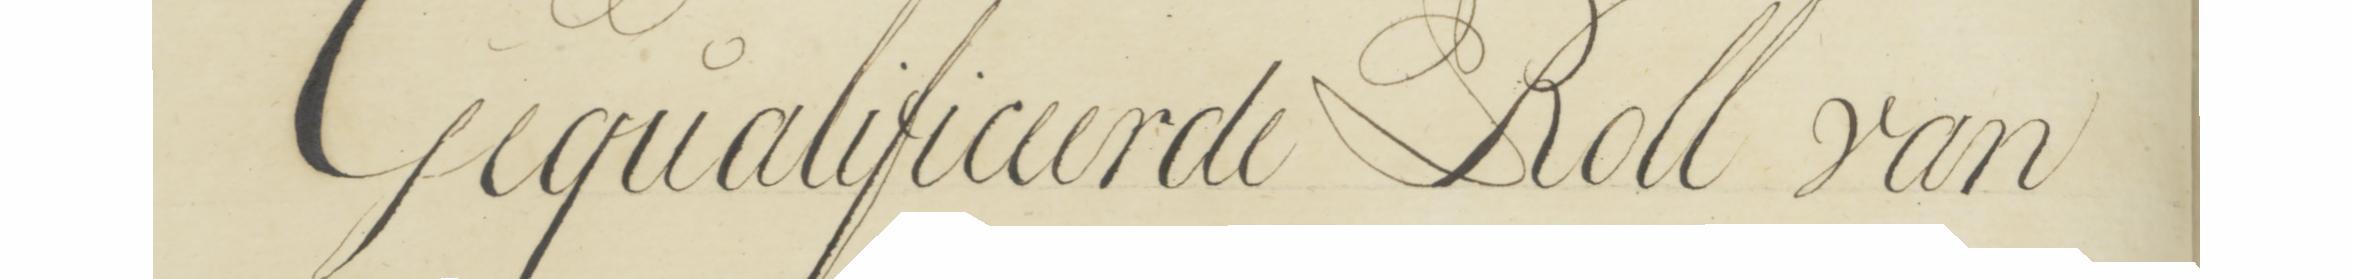 Gequalificeerde Roll van